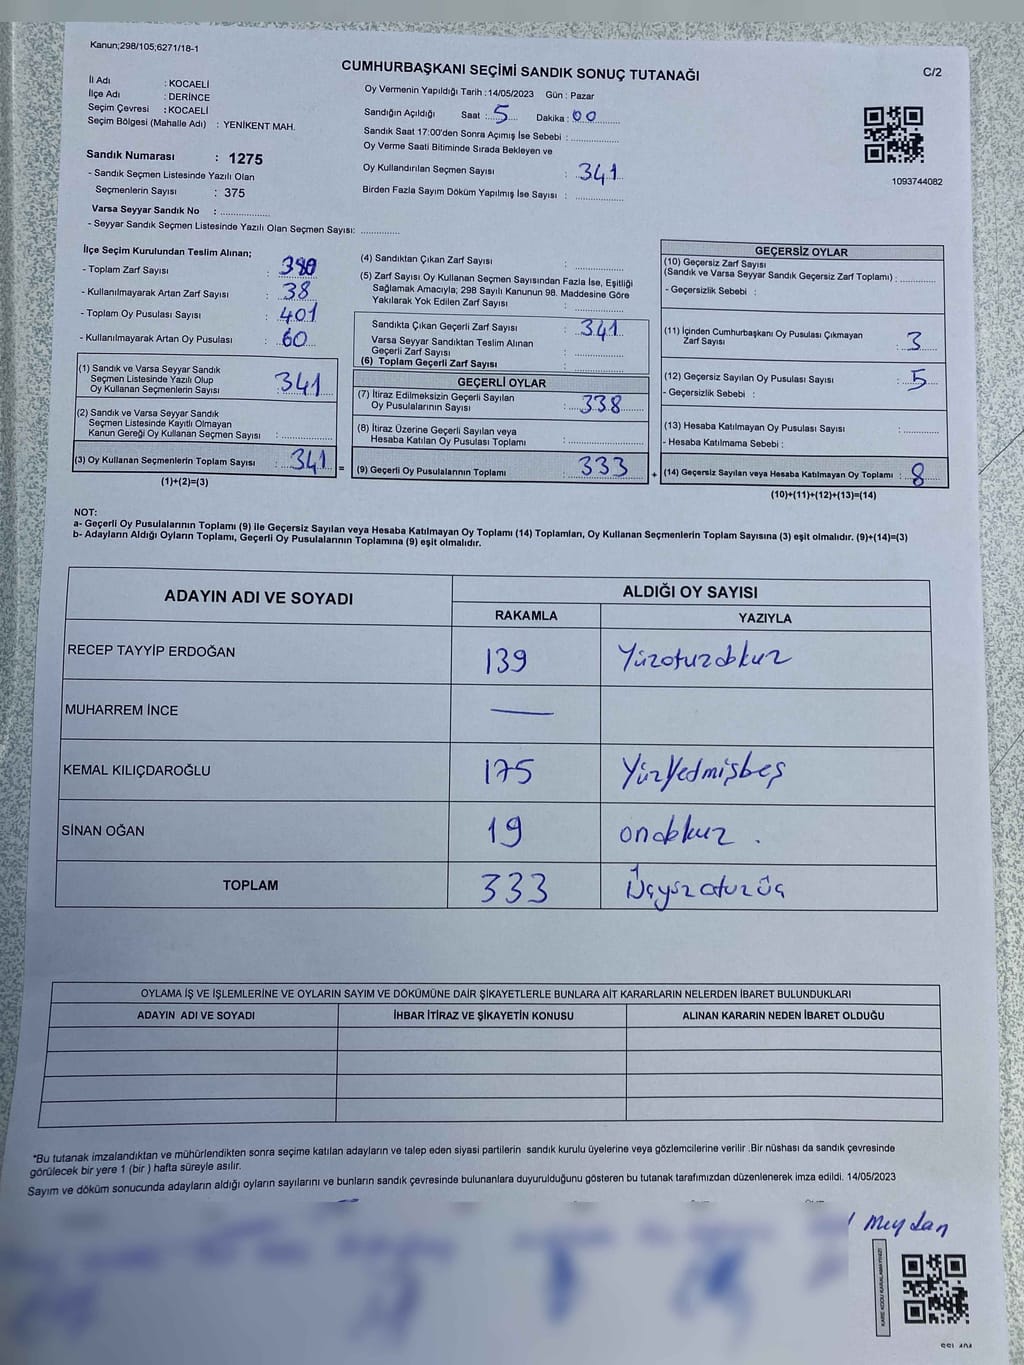 Kanun;298/105;6271/18-1
C/2
CUMHURBAŞKANI SEÇİMİ SANDIK SONUÇ TUTANAĞI
İl Adı : KOCAELİ
İlçe Adı : DERİNCE
Seçim Çevresi : KOCAELİ
Seçim Bölgesi (Mahalle Adı) : YENİKENT MAH.
Sandık Numarası : 1275
- Sandık Seçmen Listesinde Yazılı Olan
Seçmenlerin Sayısı : 375
Varsa Seyyar Sandık No : ..................
- Seyyar Sandık Seçmen Listesinde Yazılı Olan Seçmen Sayısı: .............
Oy Vermenin Yapıldığı Tarih : 14/05/2023 Gün : Pazar
Sandığın Açıldığı Saat : 5 Dakika : 00
Sandık Saat 17:00'den Sonra Açımış İse Sebebi : ................
Oy Verme Saati Bitiminde Sırada Bekleyen ve
Oy Kullandırılan Seçmen Sayısı : 341
Birden Fazla Sayım Döküm Yapılmış İse Sayısı : ................
1093744082
İlçe Seçim Kurulundan Teslim Alınan;
- Toplam Zarf Sayısı : 380
- Kullanılmayarak Artan Zarf Sayısı : 38
- Toplam Oy Pusulası Sayısı : 401
- Kullanılmayarak Artan Oy Pusulası : 60
(1) Sandık ve Varsa Seyyar Sandık
Seçmen Listesinde Yazılı Olup
Oy Kullanan Seçmenlerin Sayısı : 341
(2) Sandık ve Varsa Seyyar Sandık
Seçmen Listesinde Kayıtlı Olmayan
Kanun Gereği Oy Kullanan Seçmen Sayısı : ................
(3) Oy Kullanan Seçmenlerin Toplam Sayısı : 341 =
(1)+(2)=(3)
(4) Sandıktan Çıkan Zarf Sayısı : ................
(5) Zarf Sayısı Oy Kullanan Seçmen Sayısından Fazla İse, Eşitliği
Sağlamak Amacıyla; 298 Sayılı Kanunun 98. Maddesine Göre
Yakılarak Yok Edilen Zarf Sayısı : ................
Sandıkta Çıkan Geçerli Zarf Sayısı : 341
Varsa Seyyar Sandıktan Teslim Alınan
Geçerli Zarf Sayısı : ................
(6) Toplam Geçerli Zarf Sayısı : ................
GEÇERLİ OYLAR
(7) İtiraz Edilmeksizin Geçerli Sayılan
Oy Pusulalarının Sayısı : 338
(8) İtiraz Üzerine Geçerli Sayılan veya
Hesaba Katılan Oy Pusulası Toplamı : ................
(9) Geçerli Oy Pusulalarının Toplamı : 333 +
GEÇERSİZ OYLAR
(10) Geçersiz Zarf Sayısı
(Sandık ve Varsa Seyyar Sandık Geçersiz Zarf Toplamı) : .............
- Geçersizlik Sebebi :
(11) İçinden Cumhurbaşkanı Oy Pusulası Çıkmayan
Zarf Sayısı : 3
(12) Geçersiz Sayılan Oy Pusulası Sayısı : 5
- Geçersizlik Sebebi :
(13) Hesaba Katılmayan Oy Pusulası Sayısı : .............
- Hesaba Katılmama Sebebi :
(14) Geçersiz Sayılan veya Hesaba Katılmayan Oy Toplamı : 8
(10)+(11)+(12)+(13)=(14)
NOT:
a- Geçerli Oy Pusulalarının Toplamı (9) ile Geçersiz Sayılan veya Hesaba Katılmayan Oy Toplamı (14) Toplamları, Oy Kullanan Seçmenlerin Toplam Sayısına (3) eşit olmalıdır. (9)+(14)=(3)
b- Adayların Aldığı Oyların Toplamı, Geçerli Oy Pusulalarının Toplamına (9) eşit olmalıdır.
ADAYIN ADI VE SOYADI
ALDIĞI OY SAYISI
RAKAMLA YAZIYLA
RECEP TAYYİP ERDOĞAN 139 Yüzotuzdokuz
MUHARREM İNCE —
KEMAL KILIÇDAROĞLU 175 YüzYedmişbeş
SİNAN OĞAN 19 ondokuz .
TOPLAM 333 Üçyüzotuzüç
OYLAMA İŞ VE İŞLEMLERİNE VE OYLARIN SAYIM VE DÖKÜMÜNE DAİR ŞİKAYETLERLE BUNLARA AİT KARARLARIN NELERDEN İBARET BULUNDUKLARI
ADAYIN ADI VE SOYADI İHBAR İTİRAZ VE ŞİKAYETİN KONUSU ALINAN KARARIN NEDEN İBARET OLDUĞU
*Bu tutanak imzalandıktan ve mühürlendikten sonra seçime katılan adayların ve talep eden siyasi partilerin sandık kurulu üyelerine veya gözlemcilerine verilir .Bir nüshası da sandık çevresinde
görülecek bir yere 1 (bir ) hafta süreyle asılır.
Sayım ve döküm sonucunda adayların aldığı oyların sayılarını ve bunların sandık çevresinde bulunanlara duyurulduğunu gösteren bu tutanak tarafımızdan düzenlenerek imza edildi. 14/05/2023
Meydan
KARE KODU KARALAMAYINIZ!